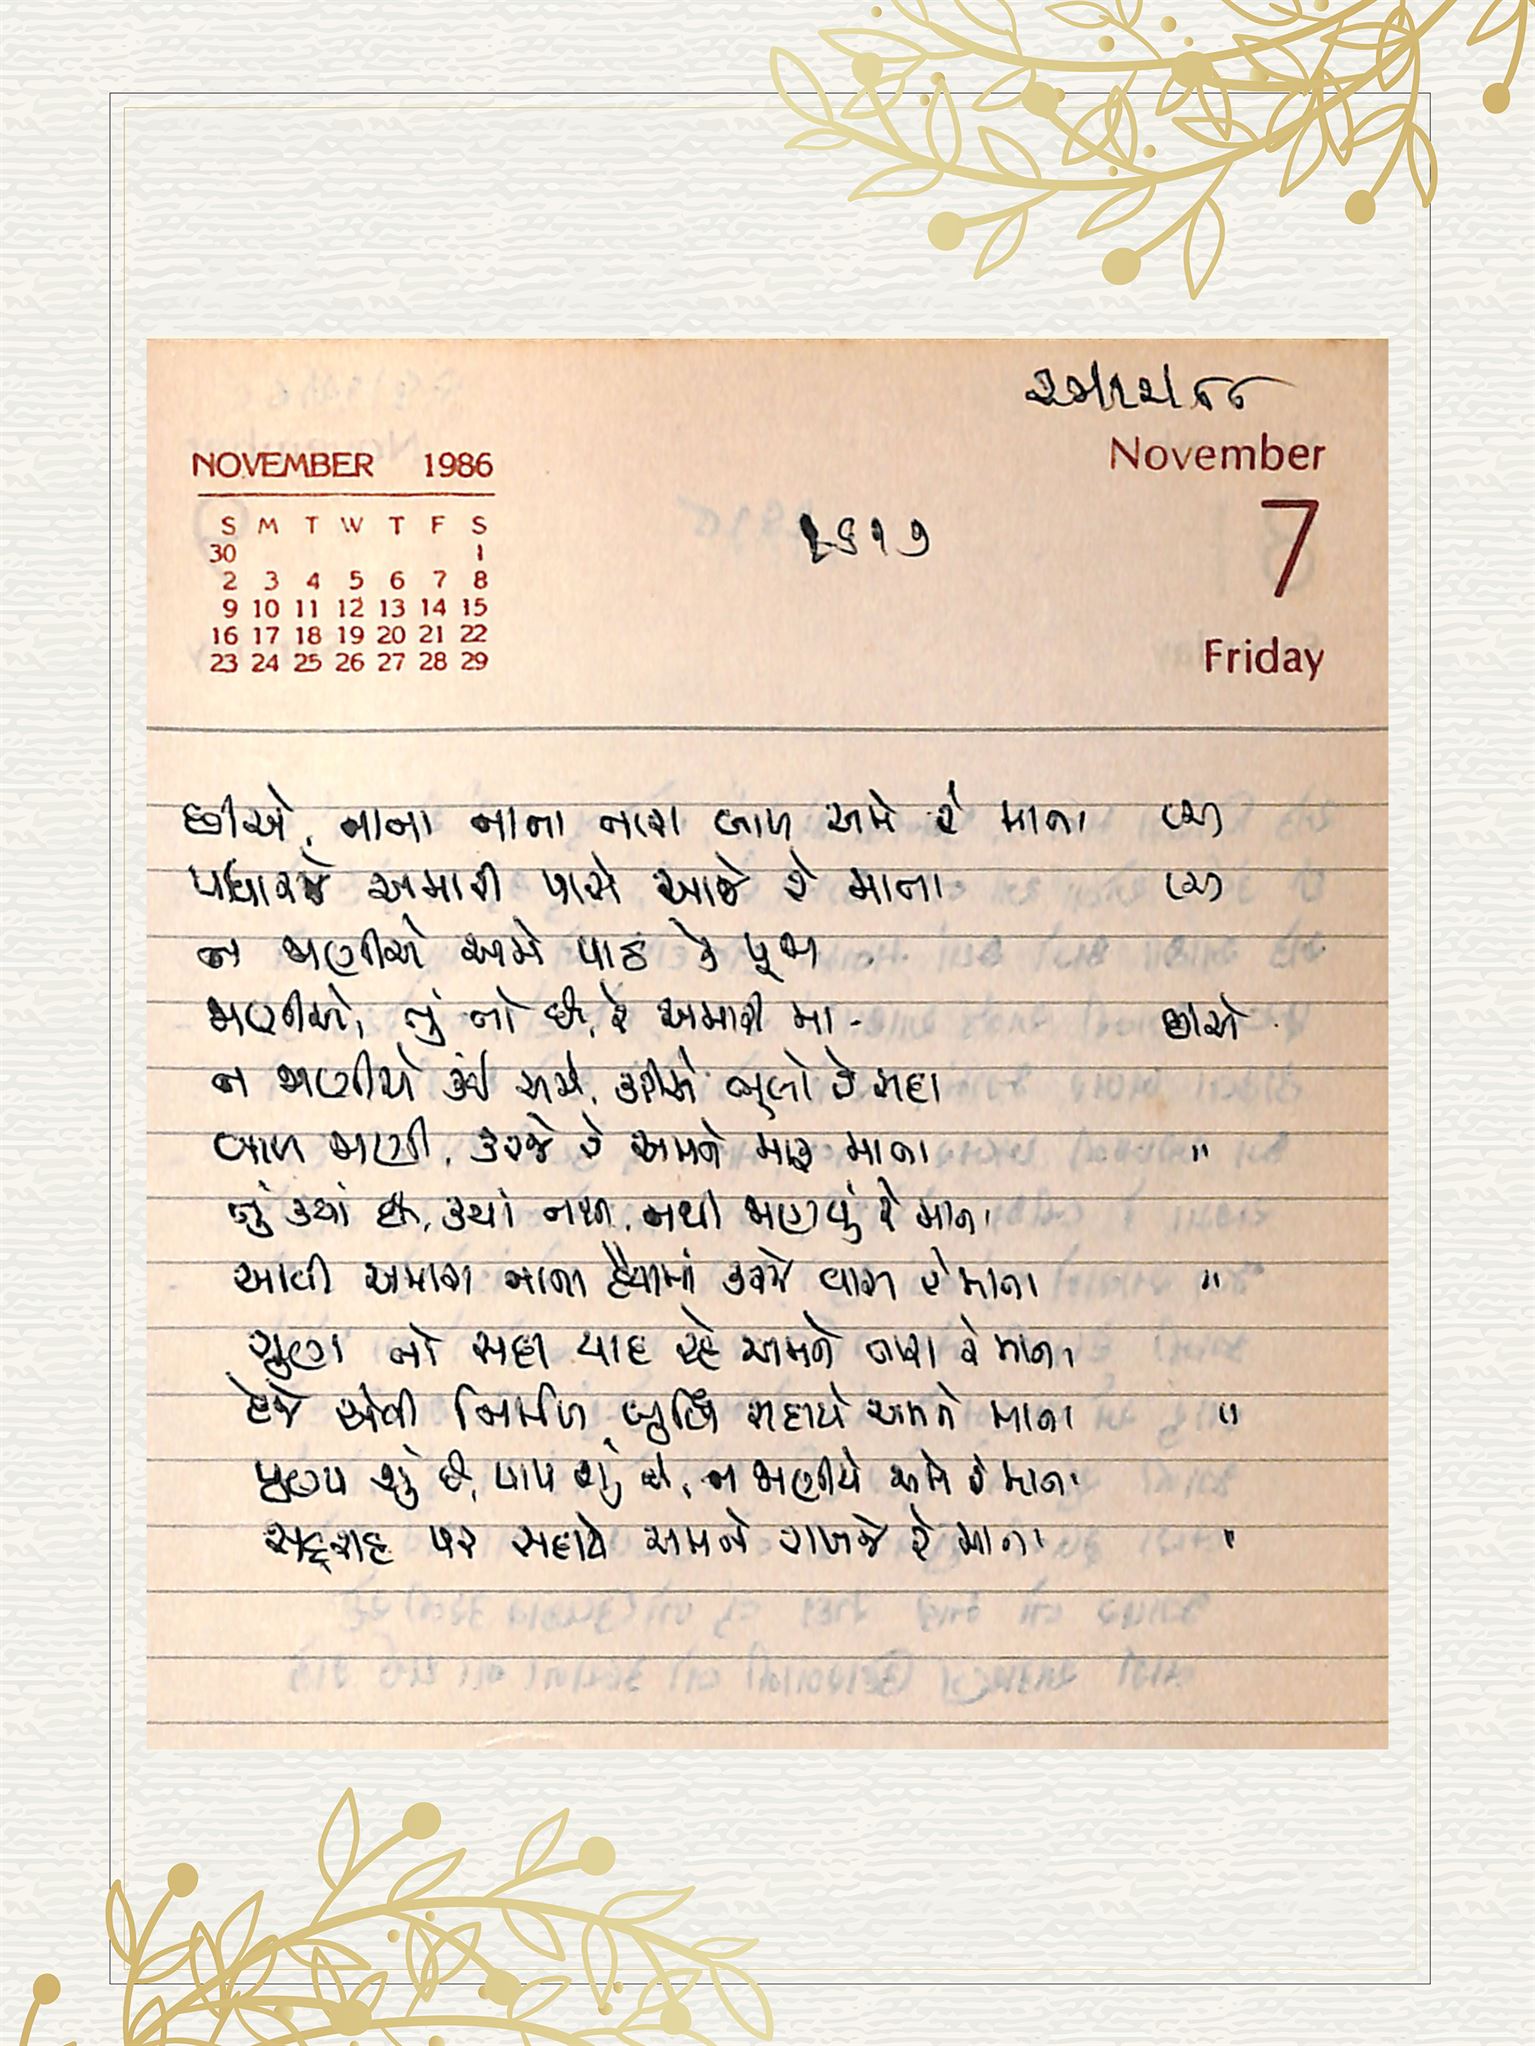 NOVEMBER 1986
S M T W T F S
30 1
2 3 4 5 6 7 8
9 10 11 12 13 14 15
16 17 18 19 20 21 22
23 24 25 26 27 28 29
November
7
Friday
છીએ, નાના નાના તારા બાળ અમે રે માતા (૨)
પધારજે અમારી પાસે આજે રે માતા (૨)
ન જાણીએ અમે પાઠ કે પૂજા
જાણીએ, તું તો છે, રે અમારી મા - છીએ
ન જાણીયે કંઈ અમે, કરીએ ભૂલો રે સદા
બાળ જાણી, કરજે રે અમને માફ માતા "
તું ક્યાં છે, ક્યાં નથી, નથી જાણવું રે માતા
આવી અમારા નાના હૈયામાં કરજે વાસ રે માતા "
ગુણો તો સદા યાદ રહે અમને તારા રે માતા
દેજે એવી નિર્મળ બુદ્ધિ સદાયે અમને માતા "
પુણ્ય શું છે, પાપ શું છે, ન જાણીયે અમે રે માતા
સદ્દરાહ પર સદાયે અમને રાખજે રે માતા "